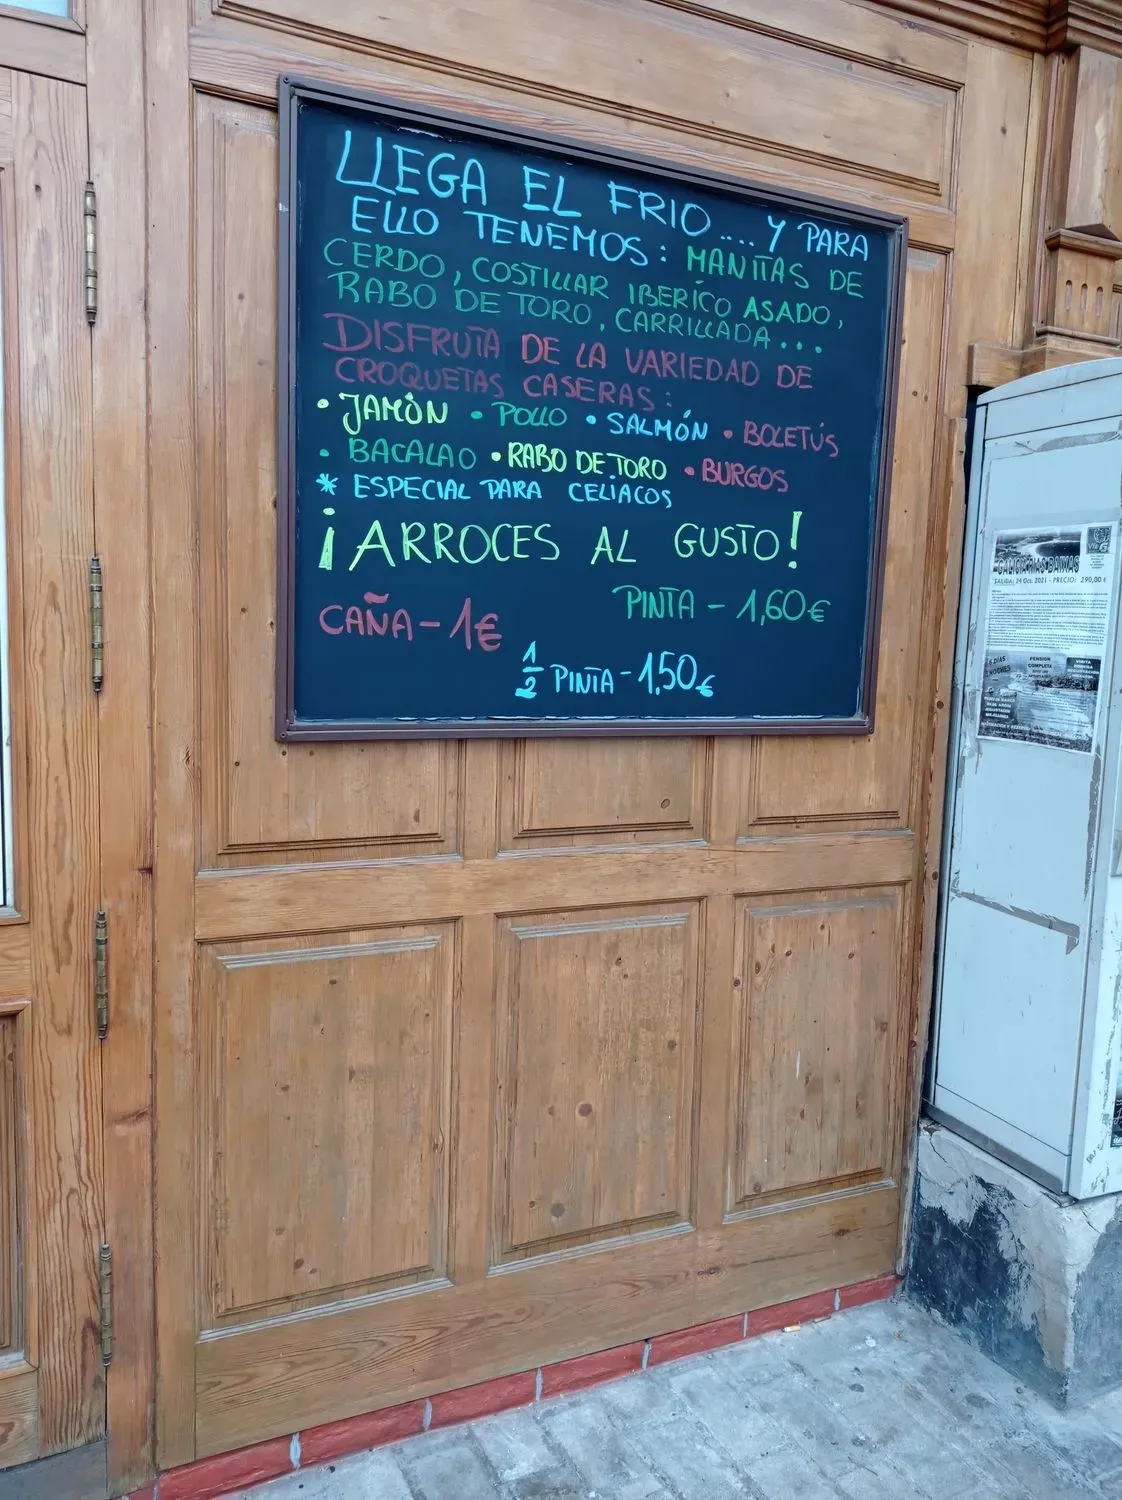 LLEGA EL FRIO.... Y PARA
ELLO TENEMOS: MANITAS DE
CERDO, COSTILLAR IBERICO ASADO,
RABO DE TORO, CARRILLADA...
DISFRUTA DE LA VARIEDAD DE
CROQUETAS CASERAS:
• JAMÓN • POLLO • SALMÓN • BOLETÚS
• BACALAO • RABO DE TORO • BURGOS
* ESPECIAL PARA CELIACOS
¡ARROCES AL GUSTO!
PINTA - 1,60€
CAÑA - 1€
1/2 PINTA - 1,50€
SALIDA: 24 Oct. 2021 - PRECIO: 290,00 €
PENSION
COMPLETA